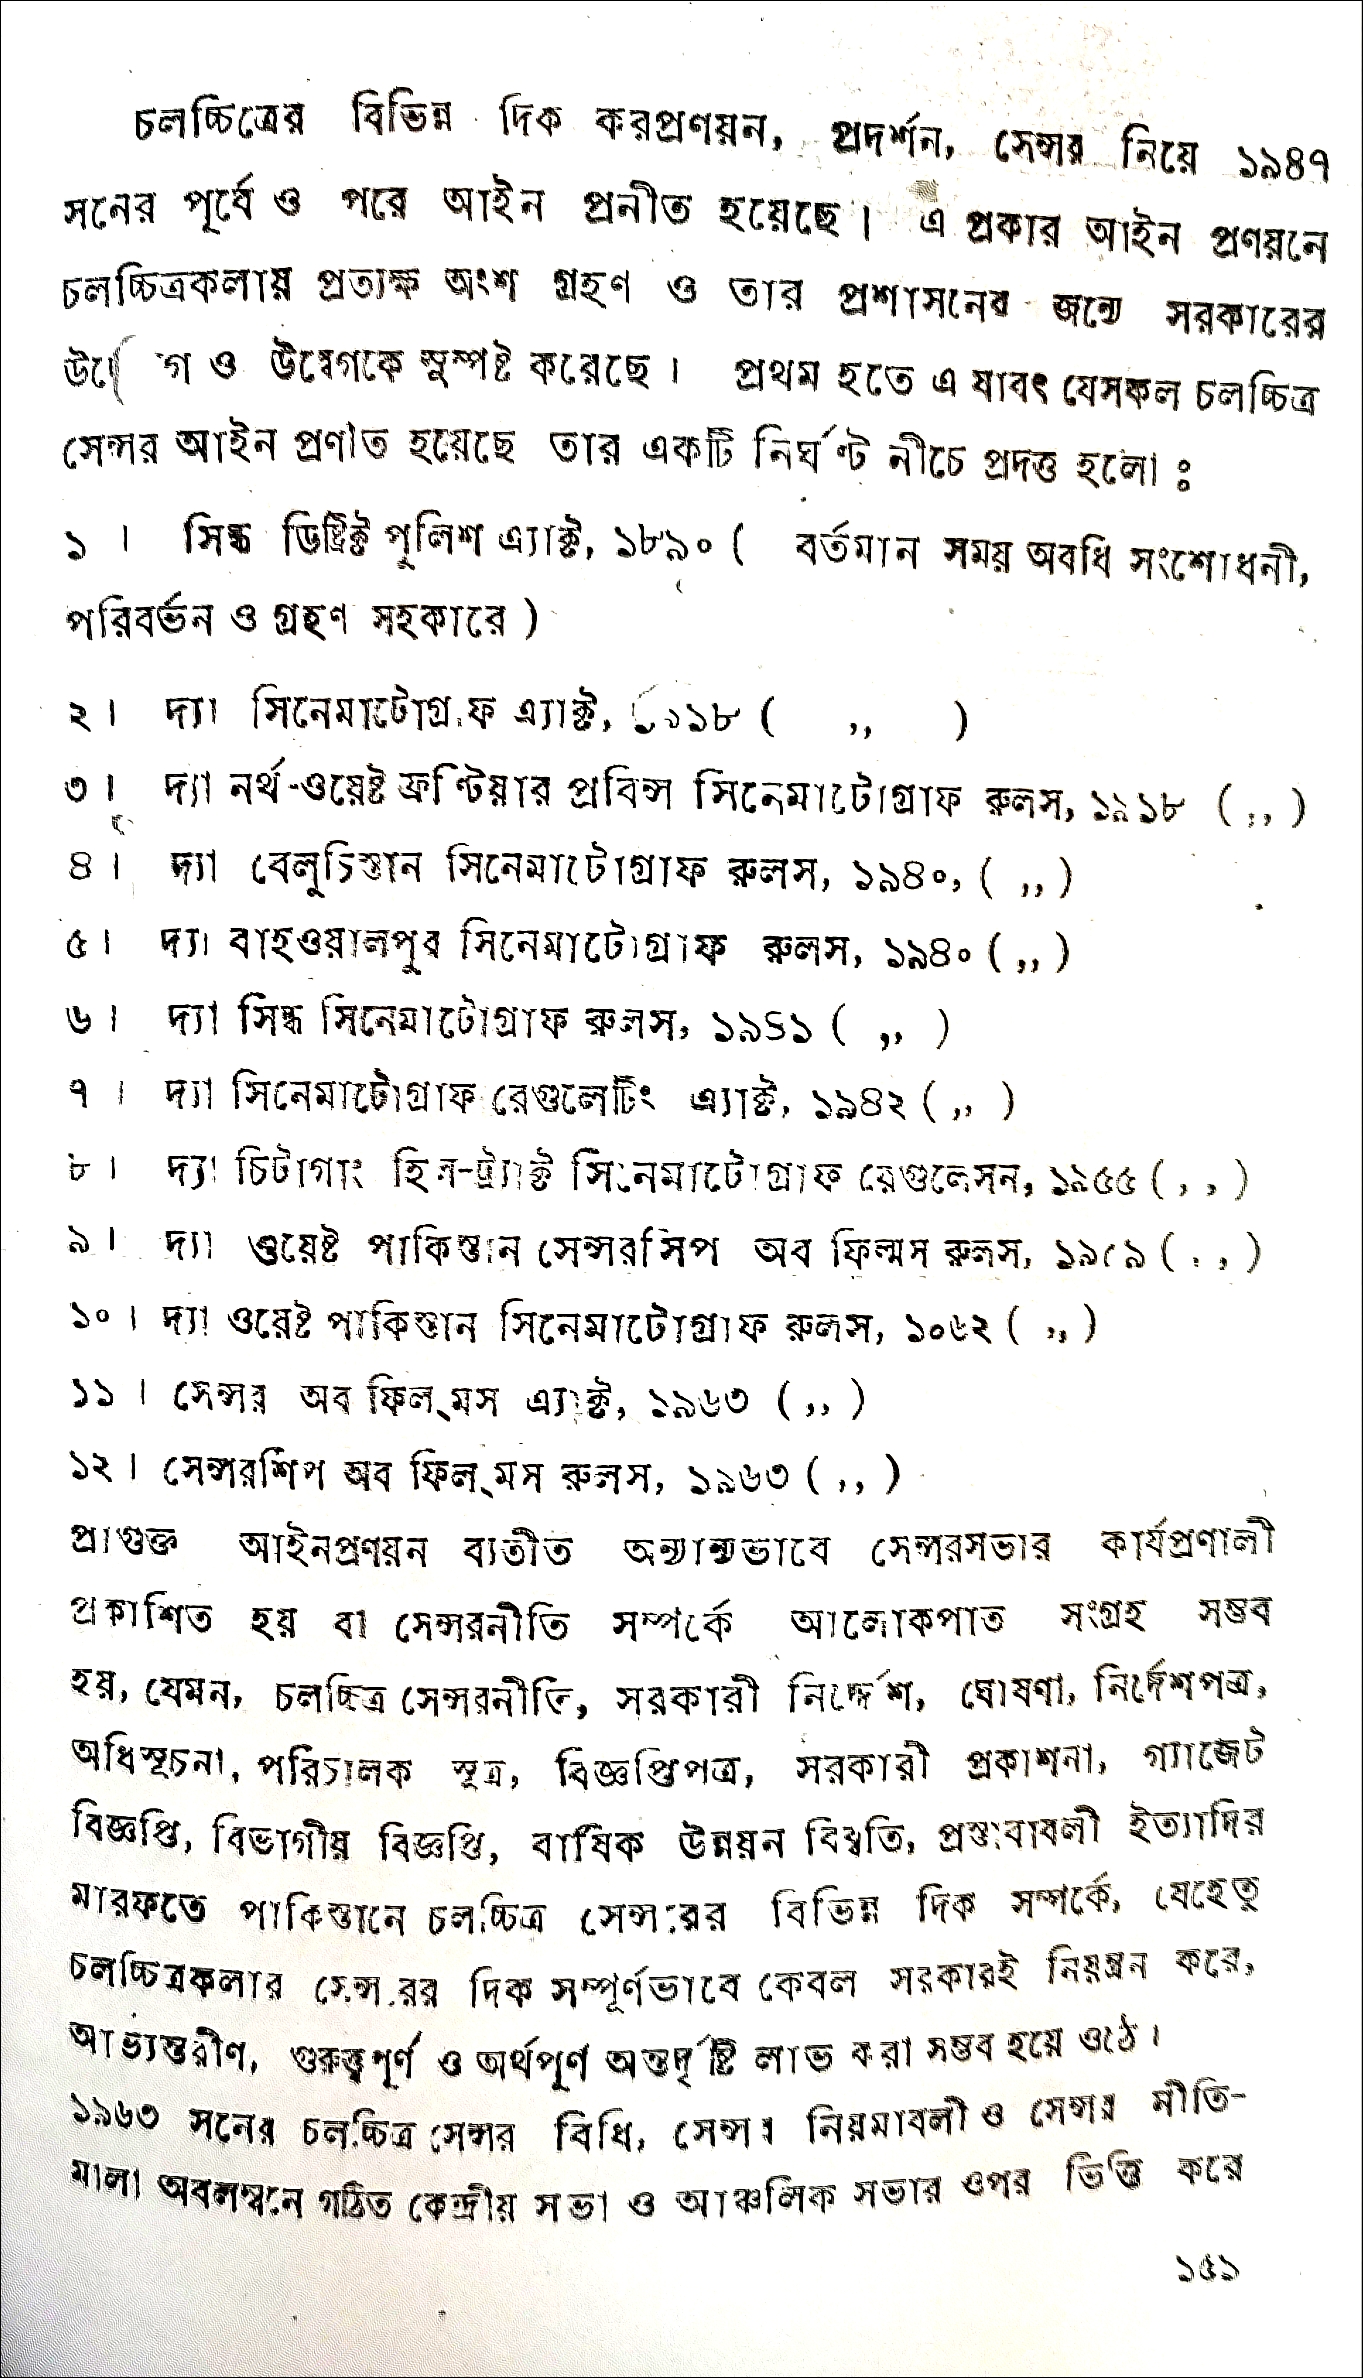 চলচ্চিত্রের বিভিন্ন দিক করপ্রণয়ন, প্রদর্শন, সেন্সর নিয়ে ১৯৪৭
সনের পূর্বে ও পরে আইন প্রনীত হয়েছে। এ প্রকার আইন প্রণয়নে
চলচ্চিত্রকলায় প্রত্যক্ষ অংশ গ্রহণ ও তার প্রশাসনের জন্যে সরকারের
ও উদ্বেগকে সুস্পষ্ট করেছে। প্রথম হতে এ যাবৎ যেসকল চলচ্চিত্র
সেন্সর আইন প্রণীত হয়েছে তার একটি নির্ঘণ্ট নীচে প্রদত্ত হলো ঃ
১ । সিন্ধ ডিষ্ট্রিক্ট পুলিশ এ্যাক্ট, ১৮৯০ ( বর্তমান সময় অবধি সংশোধনী,
পরিবর্তন ও গ্রহণ সহকারে )
২। দ্যা সিনেমাটোগ্রাফ এ্যাক্ট, ১৯১৮ ( ,, )
৩। দ্যা নর্থ-ওয়েষ্ট ফ্রণ্টিয়ার প্রবিন্স সিনেমাটোগ্রাফ রুলস, ১৯১৮ ( ,, )
৪। দ্যা বেলুচিস্তান সিনেমাটোগ্রাফ রুলস, ১৯৪০, ( ,, )
৫। দ্যা বাহওয়ালপুর সিনেমাটোগ্রাফ রুলস, ১৯৪০ ( ,, )
৬। দ্যা সিন্ধ সিনেমাটোগ্রাফ রুলস, ১৯৪১ ( ,, )
৭ । দ্যা সিনেমাটোগ্রাফ রেগুলেটিং এ্যাক্ট, ১৯৪২ ( ,, )
৮। দ্যা চিটাগাং হিল-ট্র্যাক্ট সিনেমাটোগ্রাফ রেগুলেসন, ১৯৫৫ ( ,, )
৯। দ্যা ওয়েষ্ট পাকিস্তান সেন্সরসিপ অব ফিল্মস রুলস, ১৯৫৯ ( ,, )
১০। দ্যা ওয়েষ্ট পাকিস্তান সিনেমাটোগ্রাফ রুলস, ১০৬২ ( ,, )
১১। সেন্সর অব ফিল্‌মস এ্যাক্ট, ১৯৬৩ ( ,, )
১২। সেন্সরশিপ অব ফিল্‌মস রুলস, ১৯৬৩ ( ,, )
প্রাগুক্ত আইনপ্রণয়ন ব্যতীত অন্যান্যভাবে সেন্সরসভার কার্যপ্রণালী
প্রকাশিত হয় বা সেন্সরনীতি সম্পর্কে আলোকপাত সংগ্রহ সম্ভব
হয়, যেমন, চলচ্চিত্র সেন্সরনীতি, সরকারী নির্দ্দেশ, ঘোষণা, নির্দেশপত্র,
অধিসূচনা, পরিচালক সূত্র, বিজ্ঞপ্তিপত্র, সরকারী প্রকাশনা, গ্যাজেট
বিজ্ঞপ্তি, বিভাগীয় বিজ্ঞপ্তি, বার্ষিক উন্নয়ন বিবৃতি, প্রস্তাবাবলী ইত্যাদির
মারফতে পাকিস্তানে চলচ্চিত্র সেন্সরের বিভিন্ন দিক সম্পর্কে, যেহেতু
চলচ্চিত্রকলার সেন্সরের দিক সম্পূর্ণভাবে কেবল সরকারই নিয়ন্ত্রন করে,
আভ্যন্তরীণ, গুরুত্বপূর্ণ ও অর্থপূর্ণ অন্তর্দৃষ্টি লাভ করা সম্ভব হয়ে ওঠে।
১৯৬৩ সনের চলচ্চিত্র সেন্সর বিধি, সেন্সর নিয়মাবলী ও সেন্সর নীতি-
মালা অবলম্বনে গঠিত কেন্দ্রীয় সভা ও আঞ্চলিক সভার ওপর ভিত্তি করে
১৫১